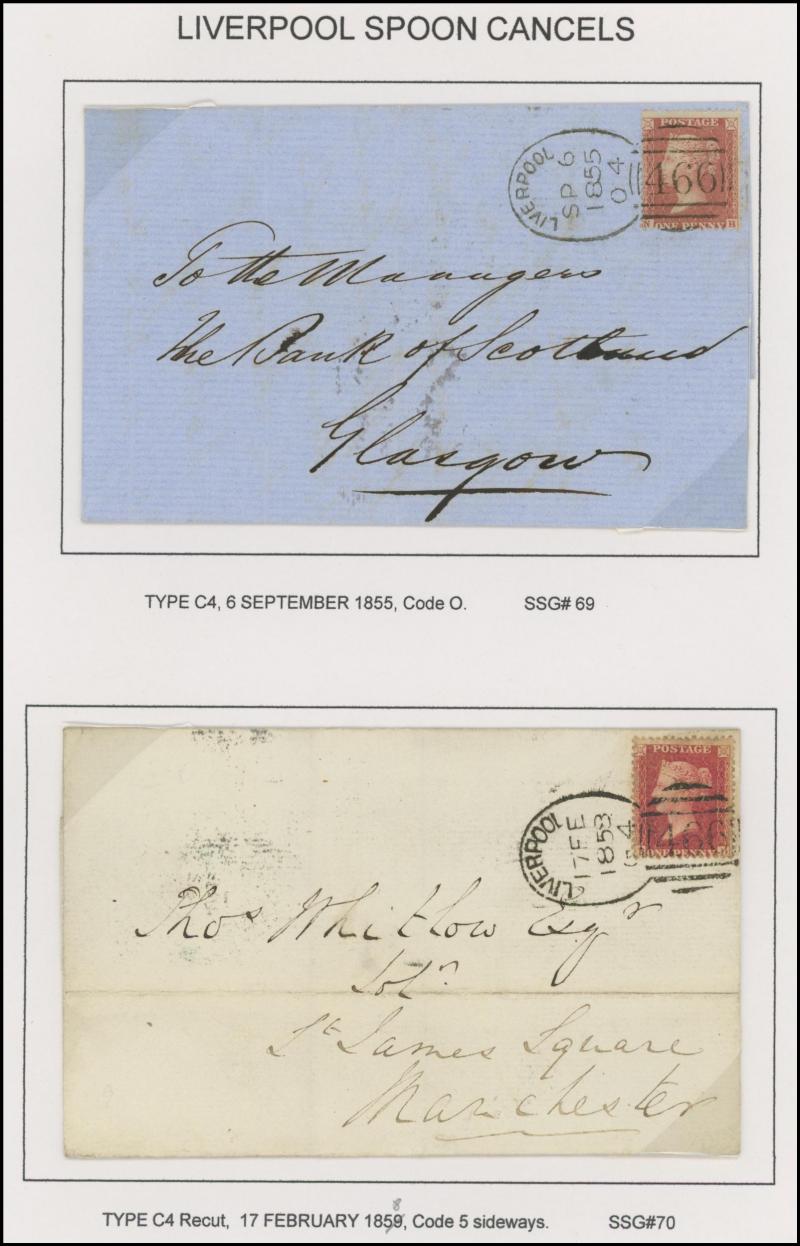 LIVERPOOL SPOON CANCELS
POSTAGE
LIVERPOOL
SP 6
1855
O 4
466
N H
ONE PENNY
To the Managers
The Bank of Scotland
Glasgow
TYPE C4, 6 SEPTEMBER 1855, Code O. SSG# 69
POSTAGE
LIVERPOOL
17 FE
1858
4
466
ONE PENNY
Thos Whitlow Esqr
Solr
St James Square
Manchester
8
TYPE C4 Recut, 17 FEBRUARY 1859, Code 5 sideways. SSG#70